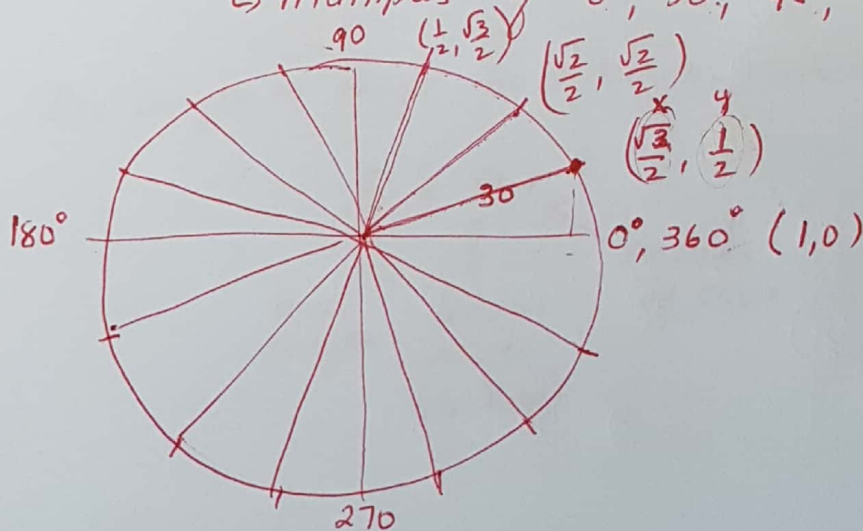 90
(1/2, √3/2)
(√2/2, √2/2)
x y
(√3/2, 1/2)
30
180°
0°, 360° (1,0)
270